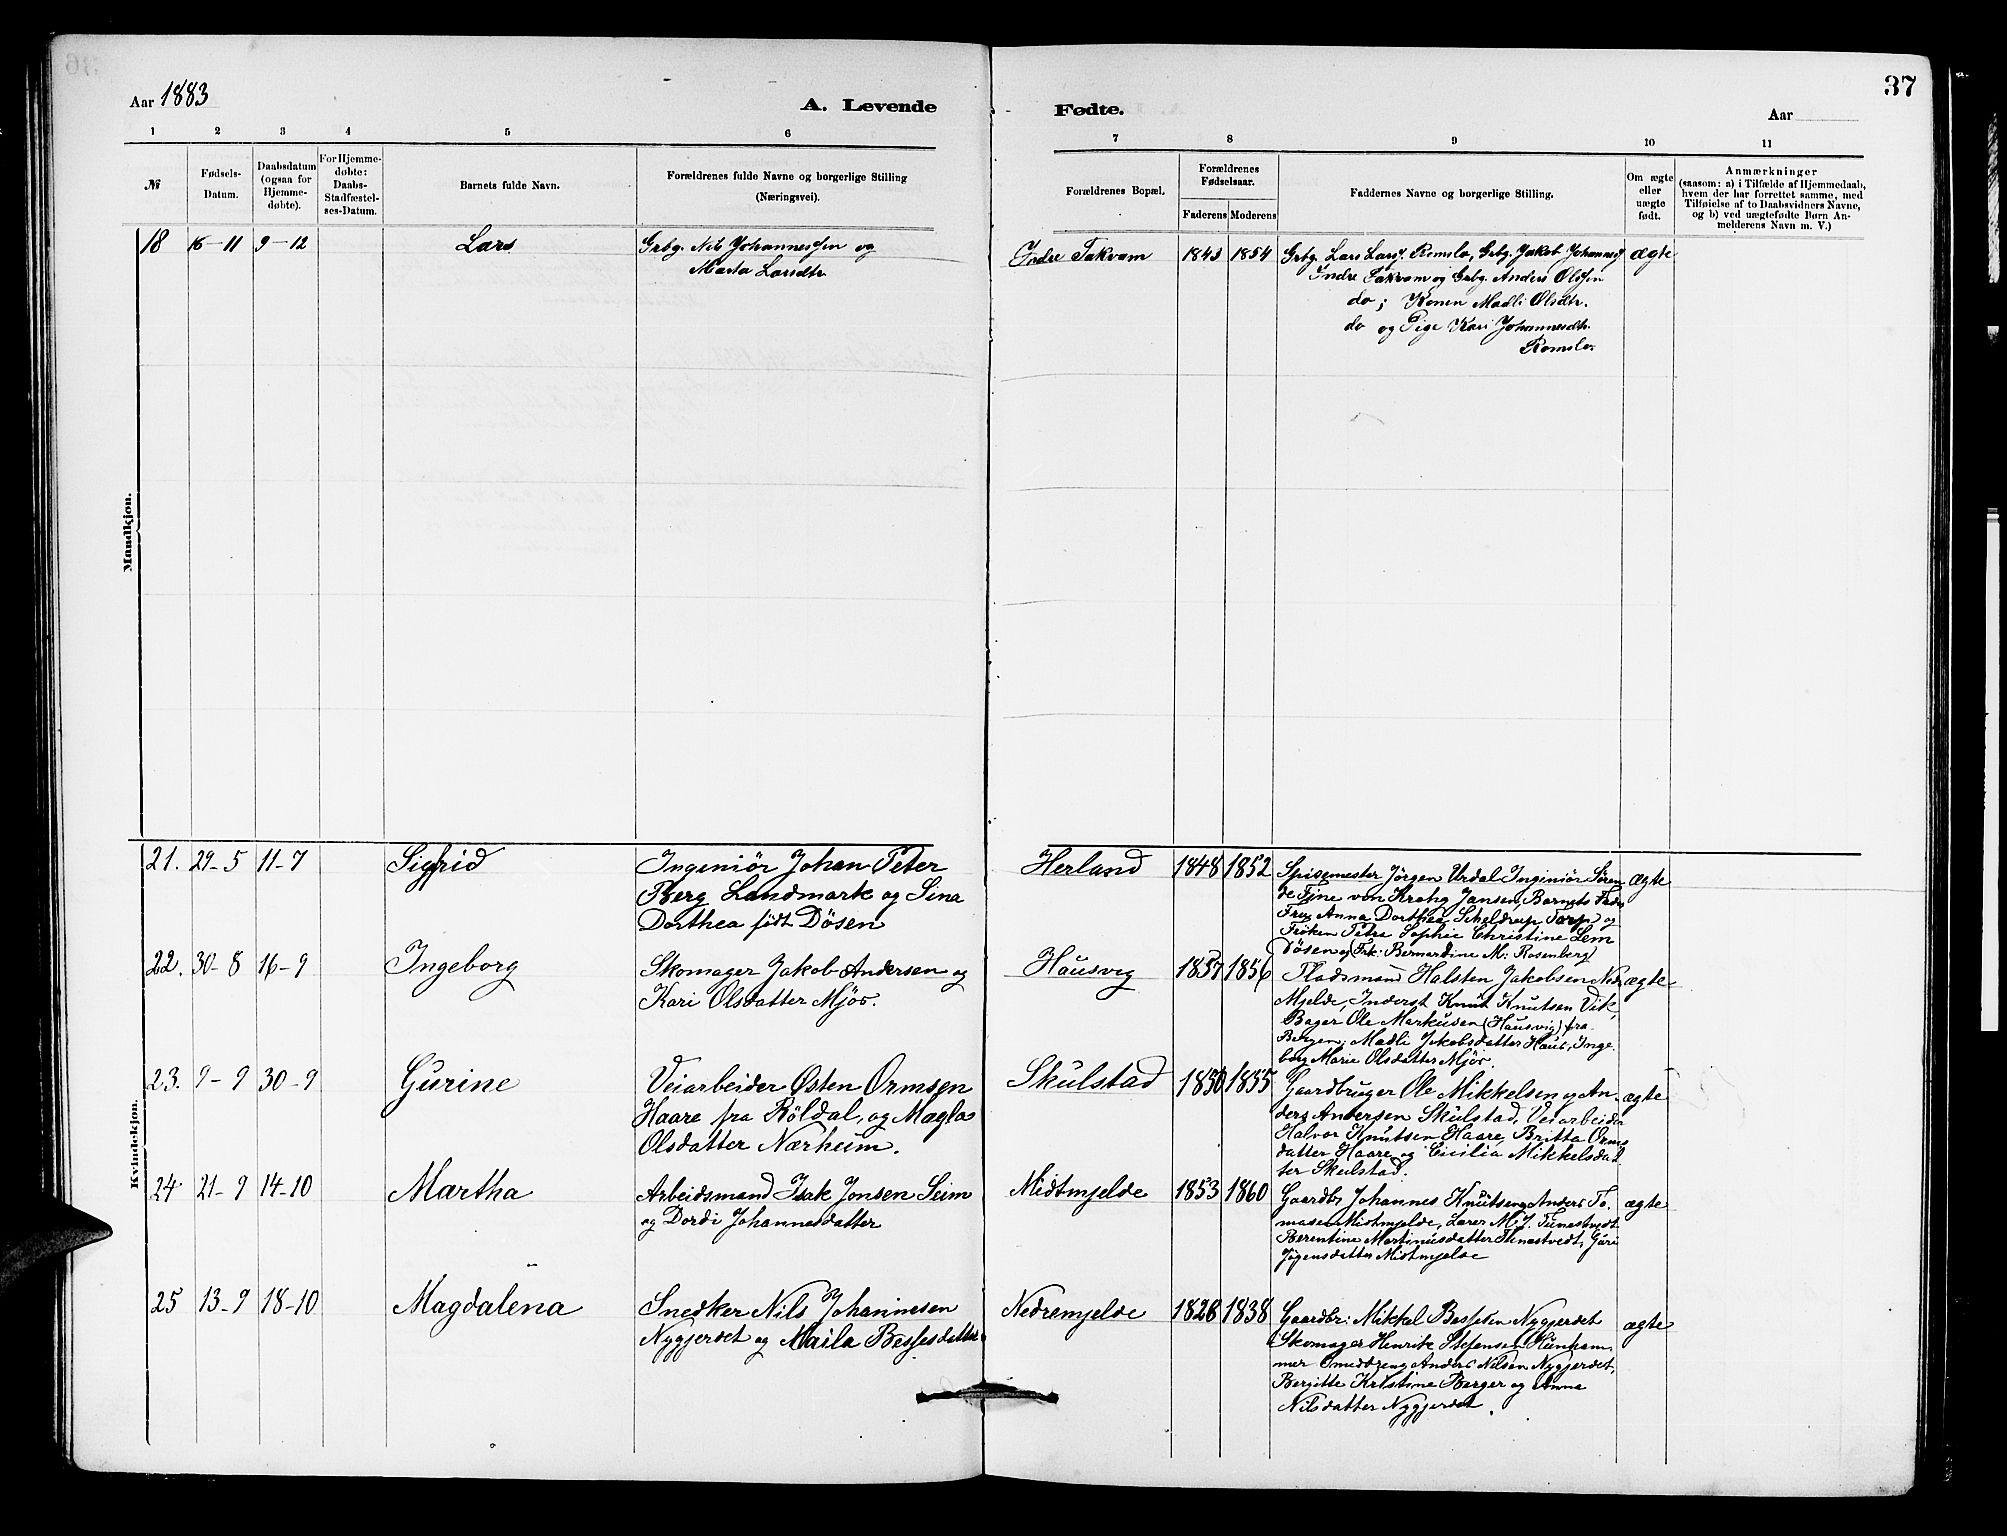 37
Aar 1883
A. Levende
Fødte.
Aar
1 2 3 4 5 6
7 8 9 10 11
№
Fødsels-
Datum.
Daabsdatum
(ogsaa for
Hjemme-
døbte).
For Hjemme-
døbte:
Daabs-
Stadfæstel-
ses-Datum.
Barnets fulde Navn.
Forældrenes fulde Navne og borgerlige Stilling
(Næringsvei).
Forældrenes Bopæl.
Forældrenes
Fødselsaar.
Faderens Moderens
Faddernes Navne og borgerlige Stilling.
Om ægte
eller
uægte
født.
Anmærkninger
(saasom: a) i Tilfælde af Hjemmedaab,
hvem der har forrettet samme, med
Tilføielse af to Daabsvidners Navne,
og b) ved uægtefødte Børn An-
melderens Navn m. V.)
Mandkjøn.
18 16-11 9-12 Lars
Grbg. Nils Johannessen og
Marta Larsdtr
Indre Takvam 1843 1854
Grbg. Lars Larss. Romslo, Grbg. Jakob Johanness
Indre Takvam og Grbg. Anders Olssen
do; Konen Madli Olsdtr.
do og Pige Kari Johannesdtr.
Romslo.
ægte
Kvindekjøn.
21. 29-5 11-7 Sigfrid
Ingeniör Johan Peter
Berg Landmark og Sina
Dorthea født Dösen
Herland 1848 1852
Spisemester Jörgen Urdal Inginiör Sören
de Fine von Krohg Jansen, Barnets Fader
Fru Anna Dorthea Scheldrup Torp og
Fröken Petra Sophie Christine Lem
Dösen og Frk: Bernardine M: Rosenberg
Ægte
22. 30-8 16-9 Ingeborg
Skomager Jakob Andersen og
Kari Olsdatter Mjös.
Hausvig 1857 1856
Pladsmand Halsten Jakobsen Ned
Mjelde, Inderst Knut Knutsen Vik,
Bager Ole Markusen (Hausvig) fra
Bergen, Madli Jakobsdatter Haus, Inge
borg Marie Olsdatter Mjös.
ægte
23. 9-9 30-9 Gurine
Veiarbeider Østen Ormsen
Haare fra Röldal, og Magla
Olsdatter Nærheim.
Skulstad 1850 1855
Gaardbruger Ole Mikkelsen og An-
ders Andersen Skulstad, Veiarbeider
Halvor Knutsen Haare, Britta Orms
datter Haare og Cicilia Mikkelsdat
ter Skulstad.
ægte
24 21-9 14-10 Martha
Arbeidsmand Isak Jonsen Seim
og Dordi Johannesdatter
Midtmjelde 1853 1860
Gaardbr Johannes Knutsen og Anders To.
masen Midtmjelde, Lærer M. J. Tunestvedt.
Berentine Martinusdatter Tunestvedt, Guri
Jögensdatter Midtmjelde
ægte
25 13-9 18-10 Magdalena
Snedker Nils Johannesen
Nygjerdet og Maila Bessesdatter
Nedremjelde 1828 1838
Gaardbr: Mikkel Bessesen Nygjerdet
Skomager Henrik Stefensen Hunham
mer Smeddreng Anders Nilsen Nygjerdet,
Bergitte Kristine Berger og Anna
Nilsdatter Nygjerdet.
ægte